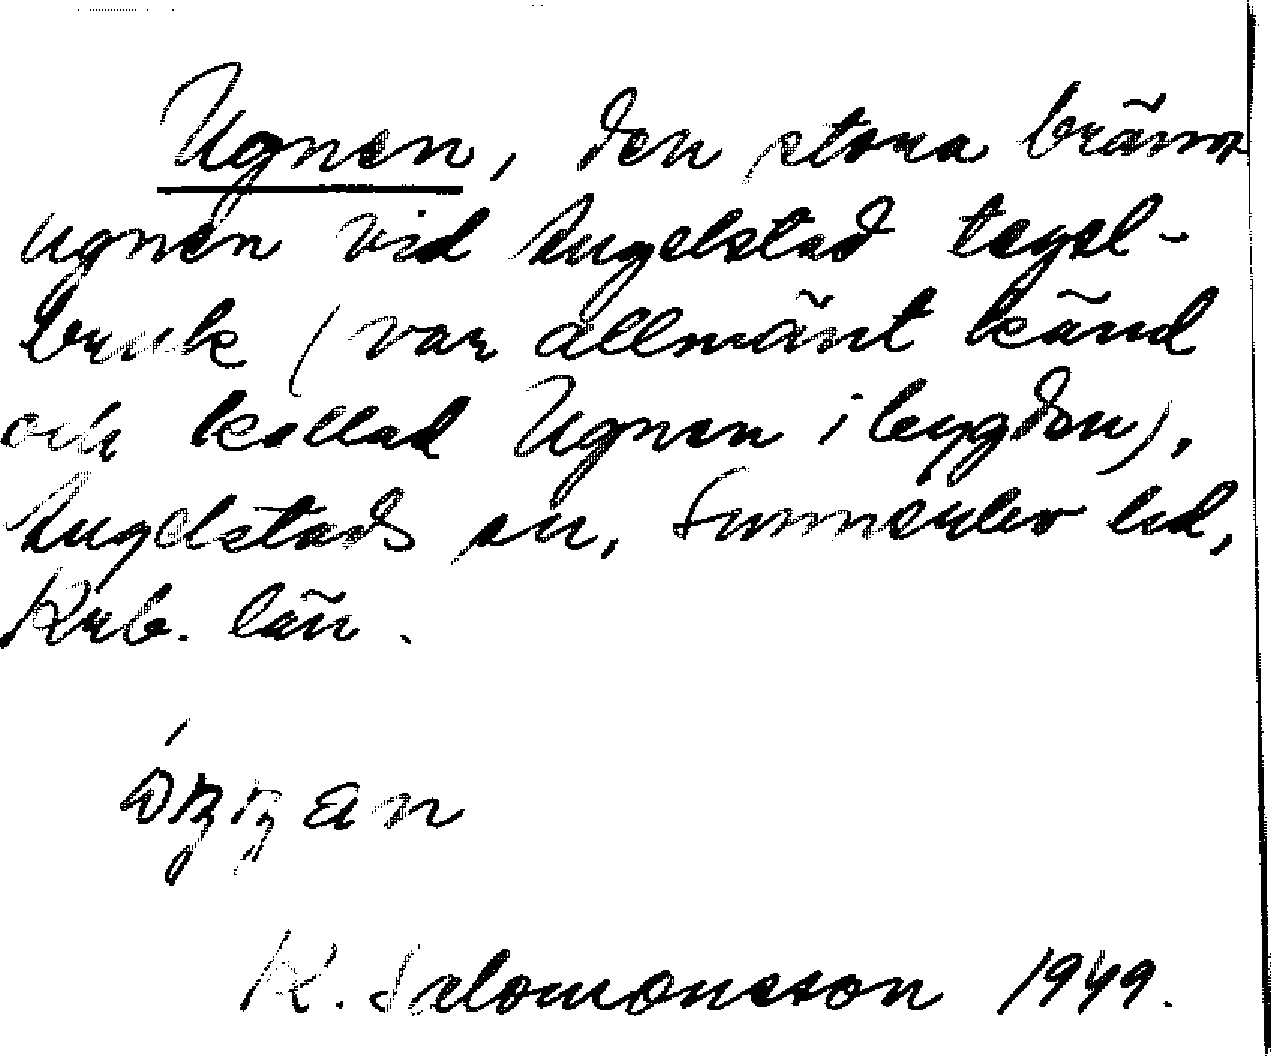 Ugnen, den stora bränn-
ugnen vid Angelstad tegel-
bruk (var allmänt känd
och kallad Ugnen i bygden),
Angelstads sn, Sunnerbo hd,
Krb. län.
K. Salomonsson 1949.